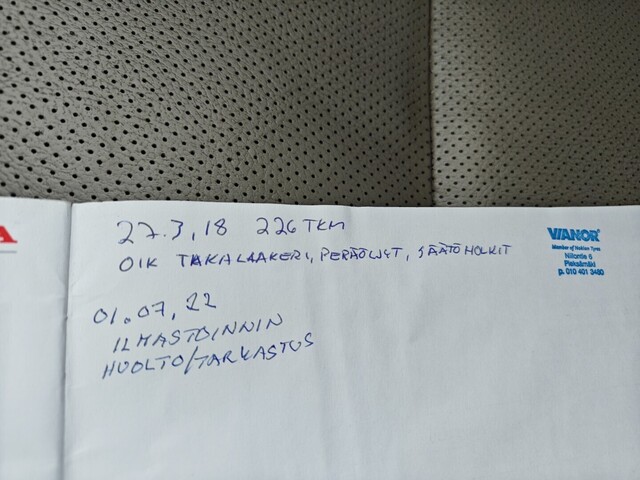 A
27.3.18 226 TKM
OIK TAKALAAKERI, PERÄÖLJYT, SÄÄTÖHOLKIT
VIANOR
Member of Nokian Tyres
Niilontie 6
Pieksämäki
p. 010 401 3480
01.07.22
ILMASTOINNIN
HUOLTO/TARKASTUS